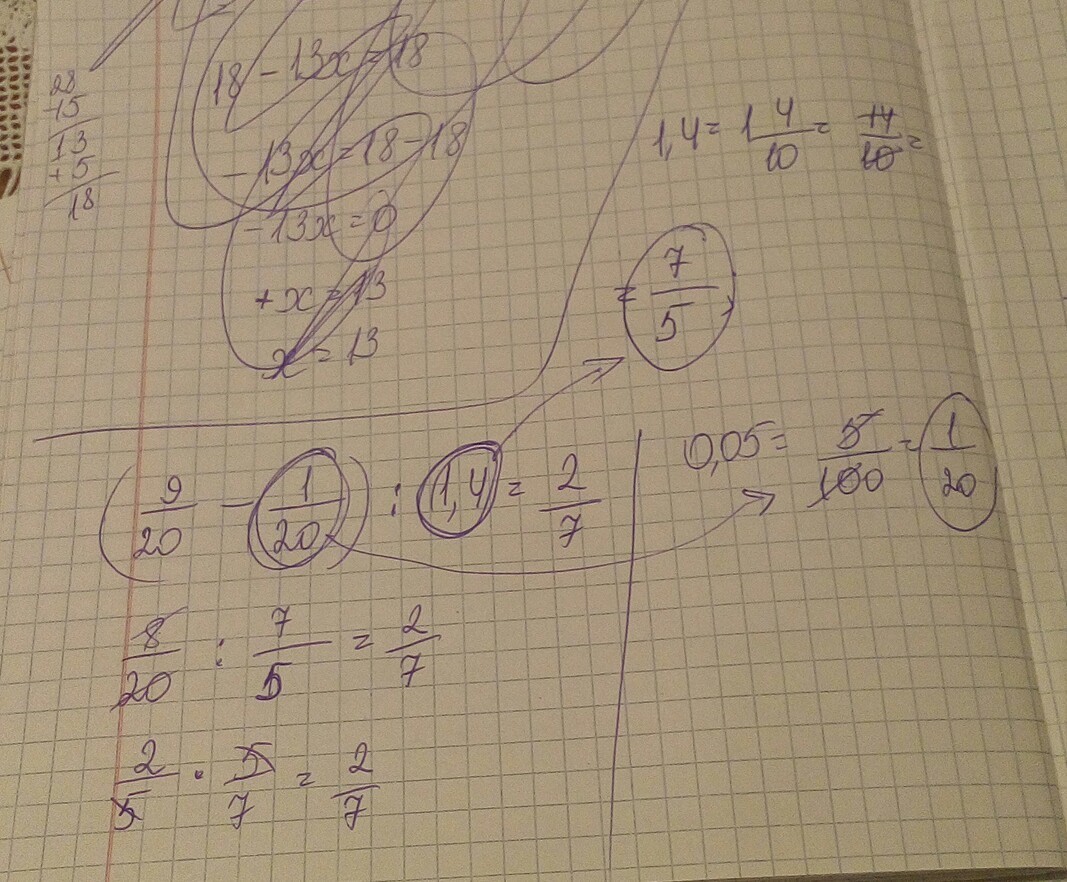 28
-15
13
+5
18
18 - 13x = 18
- 13x = 18 - 18
- 13x = 0
+ x = 13
x = 13
1,4 = 1 4/10 = 14/10 =
= 7/5
0,05 = 5/100 = 1/20
(9/20 - 1/20) : 1,4 = 2/7
8/20 : 7/5 = 2/7
2/5 · 5/7 = 2/7